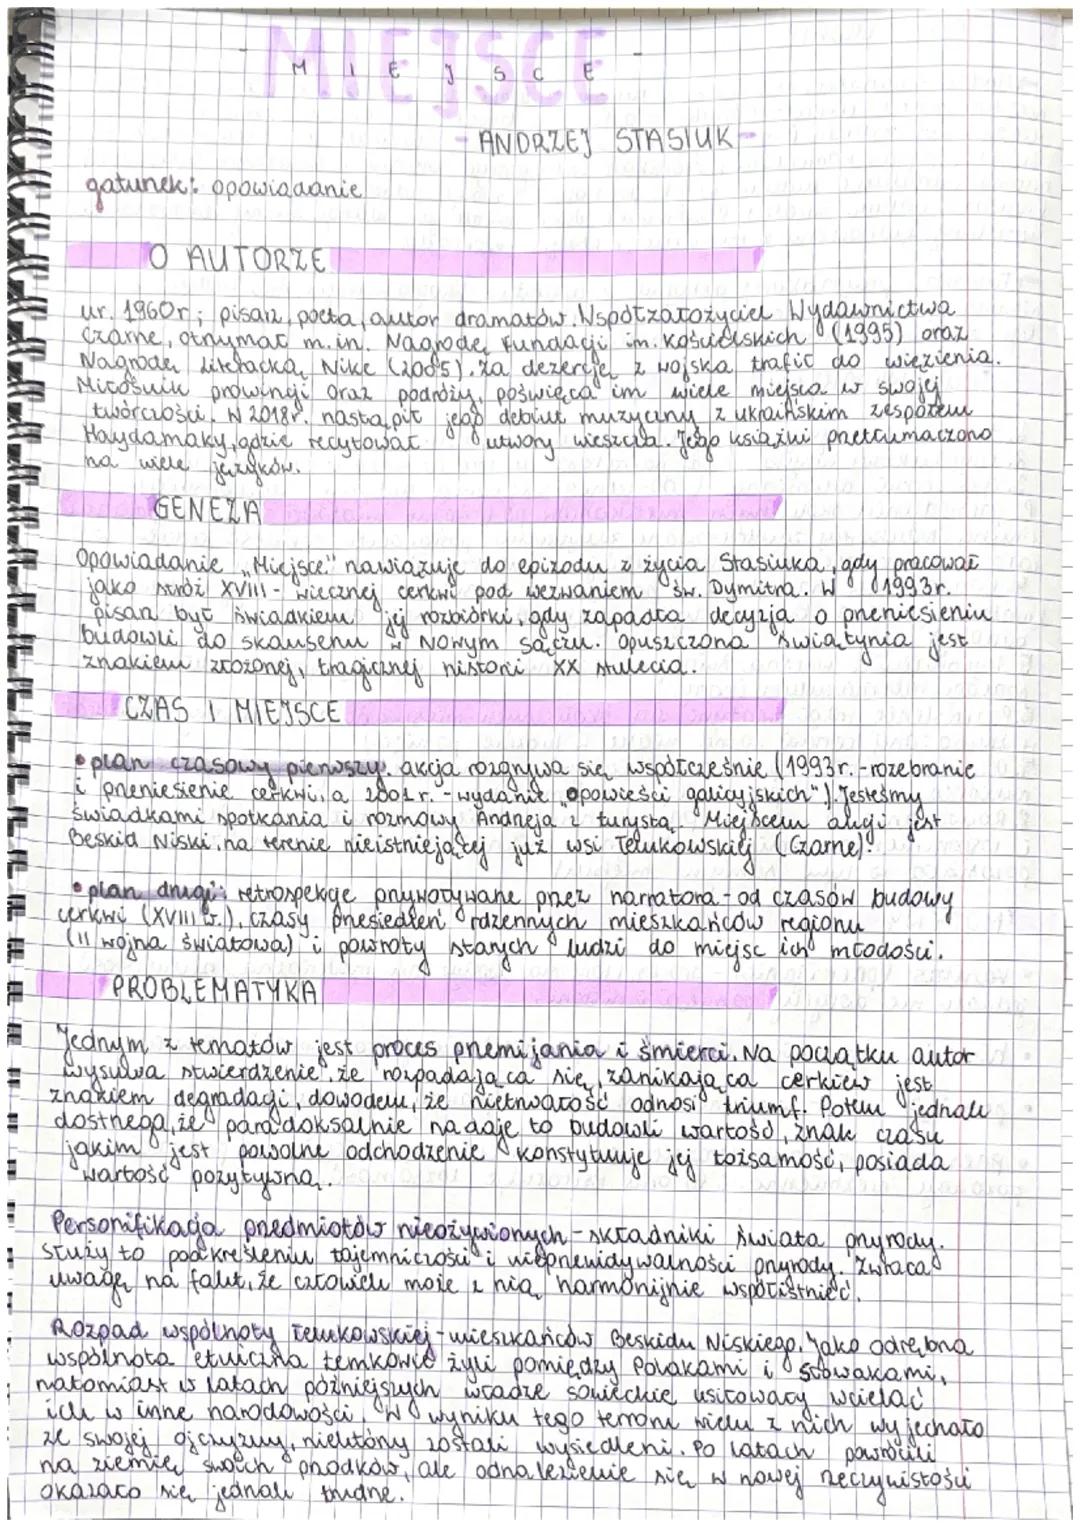 MIEJSCE
- ANDRZEJ STASIUK -
gatunek: opowiadanie
O AUTORZE
ur. 1960r; pisarz, poeta, autor dramatów. Współzałożyciel Wydawnictwa
Czarne, otrzymał m.in. Nagrodę Fundacji im. Kościelskich (1995) oraz
Nagrodę Literacką Nike (2005). Za dezercję z wojska trafił do więzienia.
Miłośnik prowincji oraz podróży, poświęca im wiele miejsca w swojej
twórczości. W 2018r. nastąpił jego debiut muzyczny z ukraińskim zespołem
Haydamaky, gdzie recytował utwory wieszcza. Jego książki przetłumaczono
na wiele języków.
GENEZA
Opowiadanie „Miejsce" nawiązuje do epizodu z życia Stasiuka, gdy pracował
jako stróż XVIII-wiecznej cerkwi pod wezwaniem św. Dymitra. W 1993r.
pisarz był świadkiem jej rozbiórki, gdy zapadła decyzja o przeniesieniu
budowli do skansenu w Nowym Sączu. Opuszczona świątynia jest
znakiem złożonej, tragicznej historii XX stulecia.
CZAS I MIEJSCE
• plan czasowy pierwszy: akcja rozgrywa się współcześnie (1993r. - rozebranie
i przeniesienie cerkwi, a 2001r. - wydanie „Opowieści galicyjskich"). Jesteśmy
świadkami spotkania i rozmowy Andrzeja z turystą. Miejscem akcji jest
Beskid Niski, na terenie nieistniejącej już wsi łemkowskiej (Czarne).
• plan drugi: retrospekcje przywoływane przez narratora - od czasów budowy
cerkwi (XVIII w.), czasy przesiedleń rdzennych mieszkańców regionu
(II wojna światowa) i powroty starych ludzi do miejsc ich młodości.
PROBLEMATYKA
Jednym z tematów jest proces przemijania i śmierci. Na początku autor
wysuwa stwierdzenie, że rozpadająca się, zanikająca cerkiew jest
znakiem degradacji, dowodem, że nietrwałość odnosi triumf. Potem jednak
dostrzega, że paradoksalnie nadaje to budowli wartość, znak czasu
jakim jest powolne odchodzenie konstytuuje jej tożsamość, posiada
wartość pozytywną.
Personifikacja przedmiotów nieożywionych - składniki świata przyrody.
Służy to podkreśleniu tajemniczości i nieprzewidywalności przyrody. Zwraca
uwagę na fakt, że człowiek może z nią harmonijnie współistnieć.
Rozpad wspólnoty łemkowskiej - mieszkańców Beskidu Niskiego. Jako odrębna
wspólnota etniczna Łemkowie żyli pomiędzy Polakami i Słowakami,
natomiast w latach późniejszych władze sowieckie usiłowały wcielać
ich w inne narodowości. W wyniku tego terroru wielu z nich wyjechało
ze swojej ojczyzny, niektórzy zostali wysiedleni. Po latach powrócili
na ziemię swoich przodków, ale odnalezienie się w nowej rzeczywistości
okazało się jednak trudne.